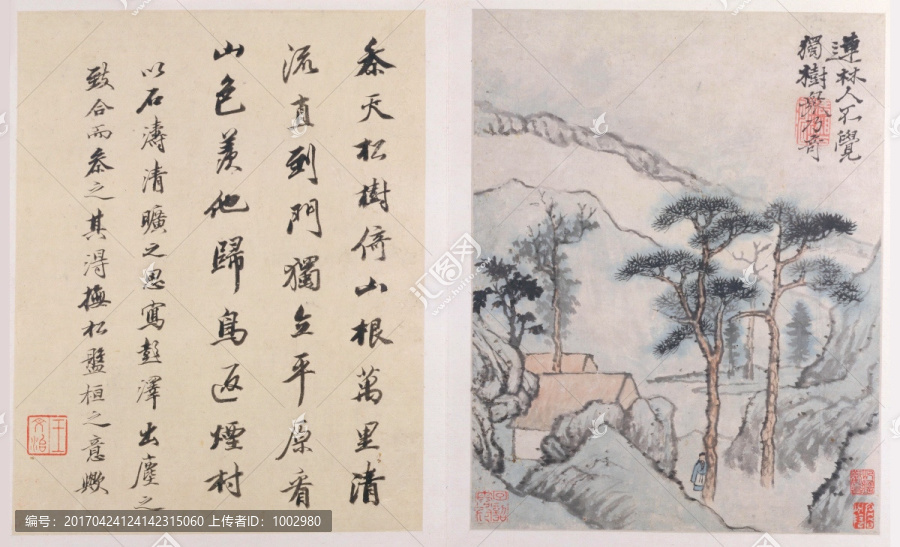 連林人不覺
獨樹眾乃奇
叅天松樹倚山根萬里清
流直到門獨立平原看
山色羨他歸鳥返煙村
以石濤清曠之思寫彭澤出塵之
致合而叅之其得撫松盤桓之意歟
王文治
汇图网
编号：20170424124142315060 上传者ID：1002980